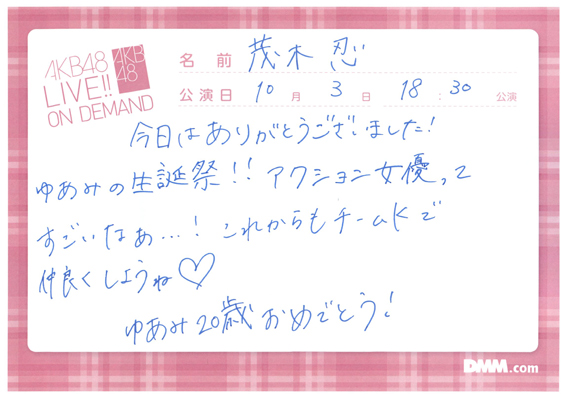 AKB48
LIVE!!
ON DEMAND
AKB
48
名前 茂木 忍
公演日 10月 3日 18:30 公演
今日はありがとうございました!
ゆあみの生誕祭!! アクション女優って
すごいなぁ…! これからもチームKで
仲良くしようね♡
ゆあみ20歳おめでとう!
DMM.com